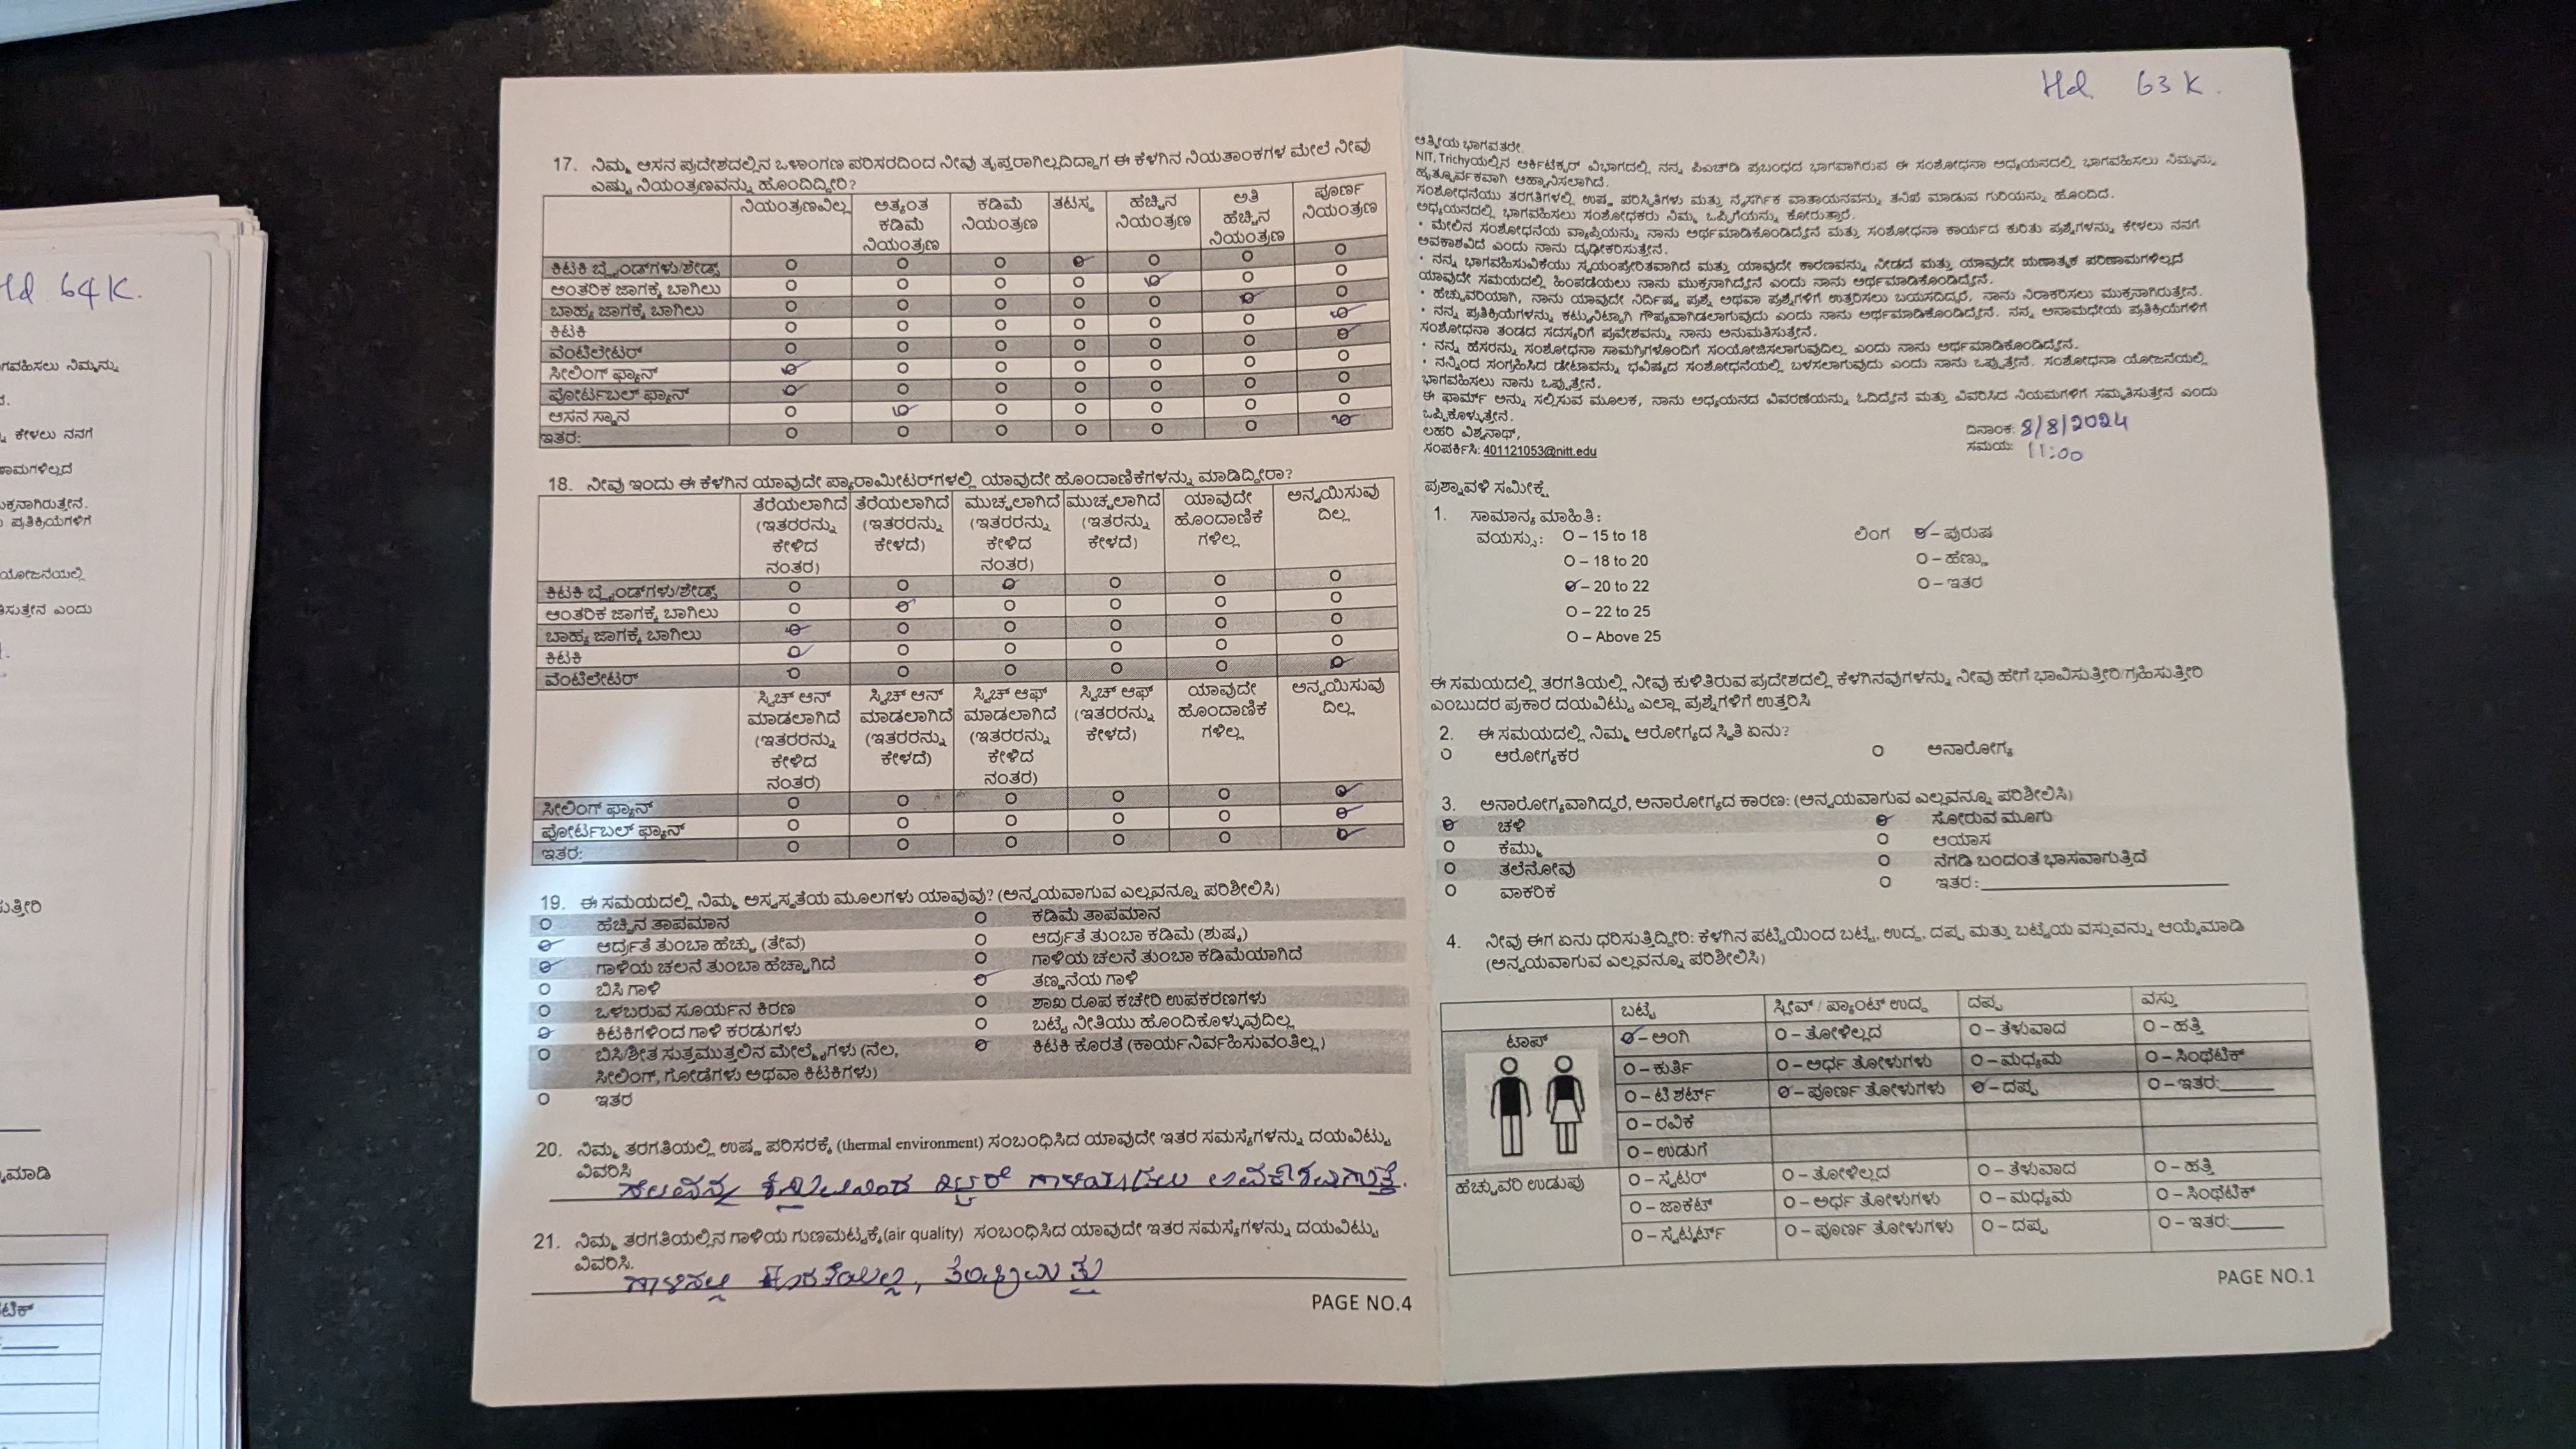 Hd 64K.
ಗವಹಿಸಲು ನಿಮ್ಮನ್ನು
ಕೇಳಲು ನನಗೆ
ಯೋಜನೆಯಲ್ಲಿ
17. ನಿಮ್ಮ ಆಸನ ಪ್ರದೇಶದಲ್ಲಿನ ಒಳಾಂಗಣ ಪರಿಸರದಿಂದ ನೀವು ತೃಪ್ತರಾಗಿಲ್ಲದಿದ್ದಾಗ ಈ ಕೆಳಗಿನ ನಿಯತಾಂಕಗಳ ಮೇಲೆ ನೀವು
ಎಷ್ಟು ನಿಯಂತ್ರಣವನ್ನು ಹೊಂದಿದ್ದೀರಿ?
ನಿಯಂತ್ರಣವಿಲ್ಲ ಅತ್ಯಂತ ಕಡಿಮೆ ನಿಯಂತ್ರಣ ಕಡಿಮೆ ನಿಯಂತ್ರಣ ತಟಸ್ಥ ಹೆಚ್ಚಿನ ನಿಯಂತ್ರಣ ಅತಿ ಹೆಚ್ಚಿನ ನಿಯಂತ್ರಣ ಪೂರ್ಣ ನಿಯಂತ್ರಣ
ಕಿಟಕಿ ಬ್ಲೈಂಡ್‌ಗಳು/ಶೇಡ್ಸ್
ಆಂತರಿಕ ಜಾಗಕ್ಕೆ ಬಾಗಿಲು
ಬಾಹ್ಯ ಜಾಗಕ್ಕೆ ಬಾಗಿಲು
ಕಿಟಕಿ
ವೆಂಟಿಲೇಟರ್
ಸೀಲಿಂಗ್ ಫ್ಯಾನ್
ಪೋರ್ಟಬಲ್ ಫ್ಯಾನ್
ಆಸನ ಸ್ಥಾನ
ಇತರ:
18. ನೀವು ಇಂದು ಈ ಕೆಳಗಿನ ಯಾವುದೇ ಪ್ಯಾರಾಮೀಟರ್‌ಗಳಲ್ಲಿ ಯಾವುದೇ ಹೊಂದಾಣಿಕೆಗಳನ್ನು ಮಾಡಿದ್ದೀರಾ?
ತೆರೆಯಲಾಗಿದೆ (ಇತರರನ್ನು ಕೇಳಿದ ನಂತರ) ತೆರೆಯಲಾಗಿದೆ (ಇತರರನ್ನು ಕೇಳದೆ) ಮುಚ್ಚಲಾಗಿದೆ (ಇತರರನ್ನು ಕೇಳಿದ ನಂತರ) ಮುಚ್ಚಲಾಗಿದೆ (ಇತರರನ್ನು ಕೇಳದೆ) ಯಾವುದೇ ಹೊಂದಾಣಿಕೆ ಗಳಿಲ್ಲ ಅನ್ವಯಿಸುವು ದಿಲ್ಲ
ಕಿಟಕಿ ಬ್ಲೈಂಡ್‌ಗಳು/ಶೇಡ್ಸ್
ಆಂತರಿಕ ಜಾಗಕ್ಕೆ ಬಾಗಿಲು
ಬಾಹ್ಯ ಜಾಗಕ್ಕೆ ಬಾಗಿಲು
ಕಿಟಕಿ
ವೆಂಟಿಲೇಟರ್
ಸ್ವಿಚ್ ಆನ್ ಮಾಡಲಾಗಿದೆ (ಇತರರನ್ನು ಕೇಳಿದ ನಂತರ) ಸ್ವಿಚ್ ಆನ್ ಮಾಡಲಾಗಿದೆ (ಇತರರನ್ನು ಕೇಳದೆ) ಸ್ವಿಚ್ ಆಫ್ ಮಾಡಲಾಗಿದೆ (ಇತರರನ್ನು ಕೇಳಿದ ನಂತರ) ಸ್ವಿಚ್ ಆಫ್ (ಇತರರನ್ನು ಕೇಳದೆ) ಯಾವುದೇ ಹೊಂದಾಣಿಕೆ ಗಳಿಲ್ಲ ಅನ್ವಯಿಸುವು ದಿಲ್ಲ
ಸೀಲಿಂಗ್ ಫ್ಯಾನ್
ಪೋರ್ಟಬಲ್ ಫ್ಯಾನ್
ಇತರ:
19. ಈ ಸಮಯದಲ್ಲಿ ನಿಮ್ಮ ಅಸ್ವಸ್ಥತೆಯ ಮೂಲಗಳು ಯಾವುವು? (ಅನ್ವಯವಾಗುವ ಎಲ್ಲವನ್ನೂ ಪರಿಶೀಲಿಸಿ)
ಹೆಚ್ಚಿನ ತಾಪಮಾನ ಕಡಿಮೆ ತಾಪಮಾನ
ಆರ್ದ್ರತೆ ತುಂಬಾ ಹೆಚ್ಚು (ತೇವ) ಆರ್ದ್ರತೆ ತುಂಬಾ ಕಡಿಮೆ (ಶುಷ್ಕ)
ಗಾಳಿಯ ಚಲನೆ ತುಂಬಾ ಹೆಚ್ಚಾಗಿದೆ ಗಾಳಿಯ ಚಲನೆ ತುಂಬಾ ಕಡಿಮೆಯಾಗಿದೆ
ಬಿಸಿ ಗಾಳಿ ತಣ್ಣನೆಯ ಗಾಳಿ
ಒಳಬರುವ ಸೂರ್ಯನ ಕಿರಣ ಶಾಖ ರೂಪ ಕಚೇರಿ ಉಪಕರಣಗಳು
ಕಿಟಕಿಗಳಿಂದ ಗಾಳಿ ಕರಡುಗಳು ಬಟ್ಟೆ ನೀತಿಯು ಹೊಂದಿಕೊಳ್ಳುವುದಿಲ್ಲ
ಬಿಸಿ/ಶೀತ ಸುತ್ತಮುತ್ತಲಿನ ಮೇಲ್ಮೈಗಳು (ನೆಲ, ಕಿಟಕಿ ಕೊರತೆ (ಕಾರ್ಯನಿರ್ವಹಿಸುವಂತಿಲ್ಲ)
ಸೀಲಿಂಗ್, ಗೋಡೆಗಳು ಅಥವಾ ಕಿಟಕಿಗಳು)
ಇತರ
20. ನಿಮ್ಮ ತರಗತಿಯಲ್ಲಿ ಉಷ್ಣ ಪರಿಸರಕ್ಕೆ (thermal environment) ಸಂಬಂಧಿಸಿದ ಯಾವುದೇ ಇತರ ಸಮಸ್ಯೆಗಳನ್ನು ದಯವಿಟ್ಟು
ವಿವರಿಸಿ
21. ನಿಮ್ಮ ತರಗತಿಯಲ್ಲಿನ ಗಾಳಿಯ ಗುಣಮಟ್ಟಕ್ಕೆ(air quality) ಸಂಬಂಧಿಸಿದ ಯಾವುದೇ ಇತರ ಸಮಸ್ಯೆಗಳನ್ನು ದಯವಿಟ್ಟು
ವಿವರಿಸಿ.
PAGE NO.4
Hd 63 K.
ಆತ್ಮೀಯ ಭಾಗವತರೇ
NIT, Trichyಯಲ್ಲಿನ ಆರ್ಕಿಟೆಕ್ಚರ್ ವಿಭಾಗದಲ್ಲಿ ನನ್ನ ಪಿಎಚ್‌ಡಿ ಪ್ರಬಂಧದ ಭಾಗವಾಗಿರುವ ಈ ಸಂಶೋಧನಾ ಅಧ್ಯಯನದಲ್ಲಿ ಭಾಗವಹಿಸಲು ನಿಮ್ಮನ್ನು
ಹೃತ್ಪೂರ್ವಕವಾಗಿ ಆಹ್ವಾನಿಸಲಾಗಿದೆ.
ಸಂಶೋಧನೆಯು ತರಗತಿಗಳಲ್ಲಿ ಉಷ್ಣ ಪರಿಸ್ಥಿತಿಗಳು ಮತ್ತು ನೈಸರ್ಗಿಕ ವಾತಾಯನವನ್ನು ತನಿಖೆ ಮಾಡುವ ಗುರಿಯನ್ನು ಹೊಂದಿದೆ.
ಅಧ್ಯಯನದಲ್ಲಿ ಭಾಗವಹಿಸಲು ಸಂಶೋಧಕರು ನಿಮ್ಮ ಒಪ್ಪಿಗೆಯನ್ನು ಕೋರುತ್ತಾರೆ.
• ಮೇಲಿನ ಸಂಶೋಧನೆಯ ವ್ಯಾಪ್ತಿಯನ್ನು ನಾನು ಅರ್ಥಮಾಡಿಕೊಂಡಿದ್ದೇನೆ ಮತ್ತು ಸಂಶೋಧನಾ ಕಾರ್ಯದ ಕುರಿತು ಪ್ರಶ್ನೆಗಳನ್ನು ಕೇಳಲು ನನಗೆ
ಅವಕಾಶವಿದೆ ಎಂದು ನಾನು ದೃಢೀಕರಿಸುತ್ತೇನೆ.
• ನನ್ನ ಭಾಗವಹಿಸುವಿಕೆಯು ಸ್ವಯಂಪ್ರೇರಿತವಾಗಿದೆ ಮತ್ತು ಯಾವುದೇ ಕಾರಣವನ್ನು ನೀಡದೆ ಮತ್ತು ಯಾವುದೇ ಋಣಾತ್ಮಕ ಪರಿಣಾಮಗಳಿಲ್ಲದೆ
ಯಾವುದೇ ಸಮಯದಲ್ಲಿ ಹಿಂಪಡೆಯಲು ನಾನು ಮುಕ್ತನಾಗಿದ್ದೇನೆ ಎಂದು ನಾನು ಅರ್ಥಮಾಡಿಕೊಂಡಿದ್ದೇನೆ.
• ಹೆಚ್ಚುವರಿಯಾಗಿ, ನಾನು ಯಾವುದೇ ನಿರ್ದಿಷ್ಟ ಪ್ರಶ್ನೆ ಅಥವಾ ಪ್ರಶ್ನೆಗಳಿಗೆ ಉತ್ತರಿಸಲು ಬಯಸದಿದ್ದರೆ, ನಾನು ನಿರಾಕರಿಸಲು ಮುಕ್ತನಾಗಿರುತ್ತೇನೆ.
• ನನ್ನ ಪ್ರತಿಕ್ರಿಯೆಗಳನ್ನು ಕಟ್ಟುನಿಟ್ಟಾಗಿ ಗೌಪ್ಯವಾಗಿಡಲಾಗುವುದು ಎಂದು ನಾನು ಅರ್ಥಮಾಡಿಕೊಂಡಿದ್ದೇನೆ. ನನ್ನ ಅನಾಮಧೇಯ ಪ್ರತಿಕ್ರಿಯೆಗಳಿಗೆ
ಸಂಶೋಧನಾ ತಂಡದ ಸದಸ್ಯರಿಗೆ ಪ್ರವೇಶವನ್ನು ನಾನು ಅನುಮತಿಸುತ್ತೇನೆ.
• ನನ್ನ ಹೆಸರನ್ನು ಸಂಶೋಧನಾ ಸಾಮಗ್ರಿಗಳೊಂದಿಗೆ ಸಂಯೋಜಿಸಲಾಗುವುದಿಲ್ಲ ಎಂದು ನಾನು ಅರ್ಥಮಾಡಿಕೊಂಡಿದ್ದೇನೆ.
• ನನ್ನಿಂದ ಸಂಗ್ರಹಿಸಿದ ಡೇಟಾವನ್ನು ಭವಿಷ್ಯದ ಸಂಶೋಧನೆಯಲ್ಲಿ ಬಳಸಲಾಗುವುದು ಎಂದು ನಾನು ಒಪ್ಪುತ್ತೇನೆ. ಸಂಶೋಧನಾ ಯೋಜನೆಯಲ್ಲಿ
ಭಾಗವಹಿಸಲು ನಾನು ಒಪ್ಪುತ್ತೇನೆ.
ಈ ಫಾರ್ಮ್ ಅನ್ನು ಸಲ್ಲಿಸುವ ಮೂಲಕ, ನಾನು ಅಧ್ಯಯನದ ವಿವರಣೆಯನ್ನು ಓದಿದ್ದೇನೆ ಮತ್ತು ವಿವರಿಸಿದ ನಿಯಮಗಳಿಗೆ ಸಮ್ಮತಿಸುತ್ತೇನೆ ಎಂದು
ಒಪ್ಪಿಕೊಳ್ಳುತ್ತೇನೆ.
ಲಹರಿ ವಿಶ್ವನಾಥ್, ದಿನಾಂಕ: 8/8/2024
ಸಂಪರ್ಕಿಸಿ: 401121053@nitt.edu ಸಮಯ: 11:00
ಪ್ರಶ್ನಾವಳಿ ಸಮೀಕ್ಷೆ
1. ಸಾಮಾನ್ಯ ಮಾಹಿತಿ:
ವಯಸ್ಸು: O – 15 to 18 ಲಿಂಗ O – ಪುರುಷ
O – 18 to 20 O – ಹೆಣ್ಣು
O – 20 to 22 O – ಇತರ
O – 22 to 25
O – Above 25
ಈ ಸಮಯದಲ್ಲಿ ತರಗತಿಯಲ್ಲಿ ನೀವು ಕುಳಿತಿರುವ ಪ್ರದೇಶದಲ್ಲಿ ಕೆಳಗಿನವುಗಳನ್ನು ನೀವು ಹೇಗೆ ಭಾವಿಸುತ್ತೀರಿ/ಗ್ರಹಿಸುತ್ತೀರಿ
ಎಂಬುದರ ಪ್ರಕಾರ ದಯವಿಟ್ಟು ಎಲ್ಲಾ ಪ್ರಶ್ನೆಗಳಿಗೆ ಉತ್ತರಿಸಿ
2. ಈ ಸಮಯದಲ್ಲಿ ನಿಮ್ಮ ಆರೋಗ್ಯದ ಸ್ಥಿತಿ ಏನು?
ಆರೋಗ್ಯಕರ ಅನಾರೋಗ್ಯ
3. ಅನಾರೋಗ್ಯವಾಗಿದ್ದರೆ, ಅನಾರೋಗ್ಯದ ಕಾರಣ: (ಅನ್ವಯವಾಗುವ ಎಲ್ಲವನ್ನೂ ಪರಿಶೀಲಿಸಿ)
ಚಳಿ ಸೋರುವ ಮೂಗು
ಕೆಮ್ಮು ಆಯಾಸ
ತಲೆನೋವು ನೆಗಡಿ ಬಂದಂತೆ ಭಾಸವಾಗುತ್ತಿದೆ
ವಾಕರಿಕೆ ಇತರ:
4. ನೀವು ಈಗ ಏನು ಧರಿಸುತ್ತಿದ್ದೀರಿ: ಕೆಳಗಿನ ಪಟ್ಟಿಯಿಂದ ಬಟ್ಟೆ, ಉದ್ದ, ದಪ್ಪ ಮತ್ತು ಬಟ್ಟೆಯ ವಸ್ತುವನ್ನು ಆಯ್ಕೆಮಾಡಿ
(ಅನ್ವಯವಾಗುವ ಎಲ್ಲವನ್ನೂ ಪರಿಶೀಲಿಸಿ)
ಬಟ್ಟೆ ಸ್ಲೀವ್ / ಪ್ಯಾಂಟ್ ಉದ್ದ ದಪ್ಪ ವಸ್ತು
ಟಾಪ್ O – ಅಂಗಿ O – ತೋಳಿಲ್ಲದ O – ತೆಳುವಾದ O – ಹತ್ತಿ
O – ಕುರ್ತಿ O – ಅರ್ಧ ತೋಳುಗಳು O – ಮಧ್ಯಮ O – ಸಿಂಥೆಟಿಕ್
O – ಟಿ ಶರ್ಟ್ O – ಪೂರ್ಣ ತೋಳುಗಳು O – ದಪ್ಪ O – ಇತರ:
O – ರವಿಕೆ
O – ಉಡುಗೆ
ಹೆಚ್ಚುವರಿ ಉಡುಪು O – ಸ್ವೆಟರ್ O – ತೋಳಿಲ್ಲದ O – ತೆಳುವಾದ O – ಹತ್ತಿ
O – ಜಾಕೆಟ್ O – ಅರ್ಧ ತೋಳುಗಳು O – ಮಧ್ಯಮ O – ಸಿಂಥೆಟಿಕ್
O – ಸ್ವೆಟ್ಶರ್ಟ್ O – ಪೂರ್ಣ ತೋಳುಗಳು O – ದಪ್ಪ O – ಇತರ:
PAGE NO.1